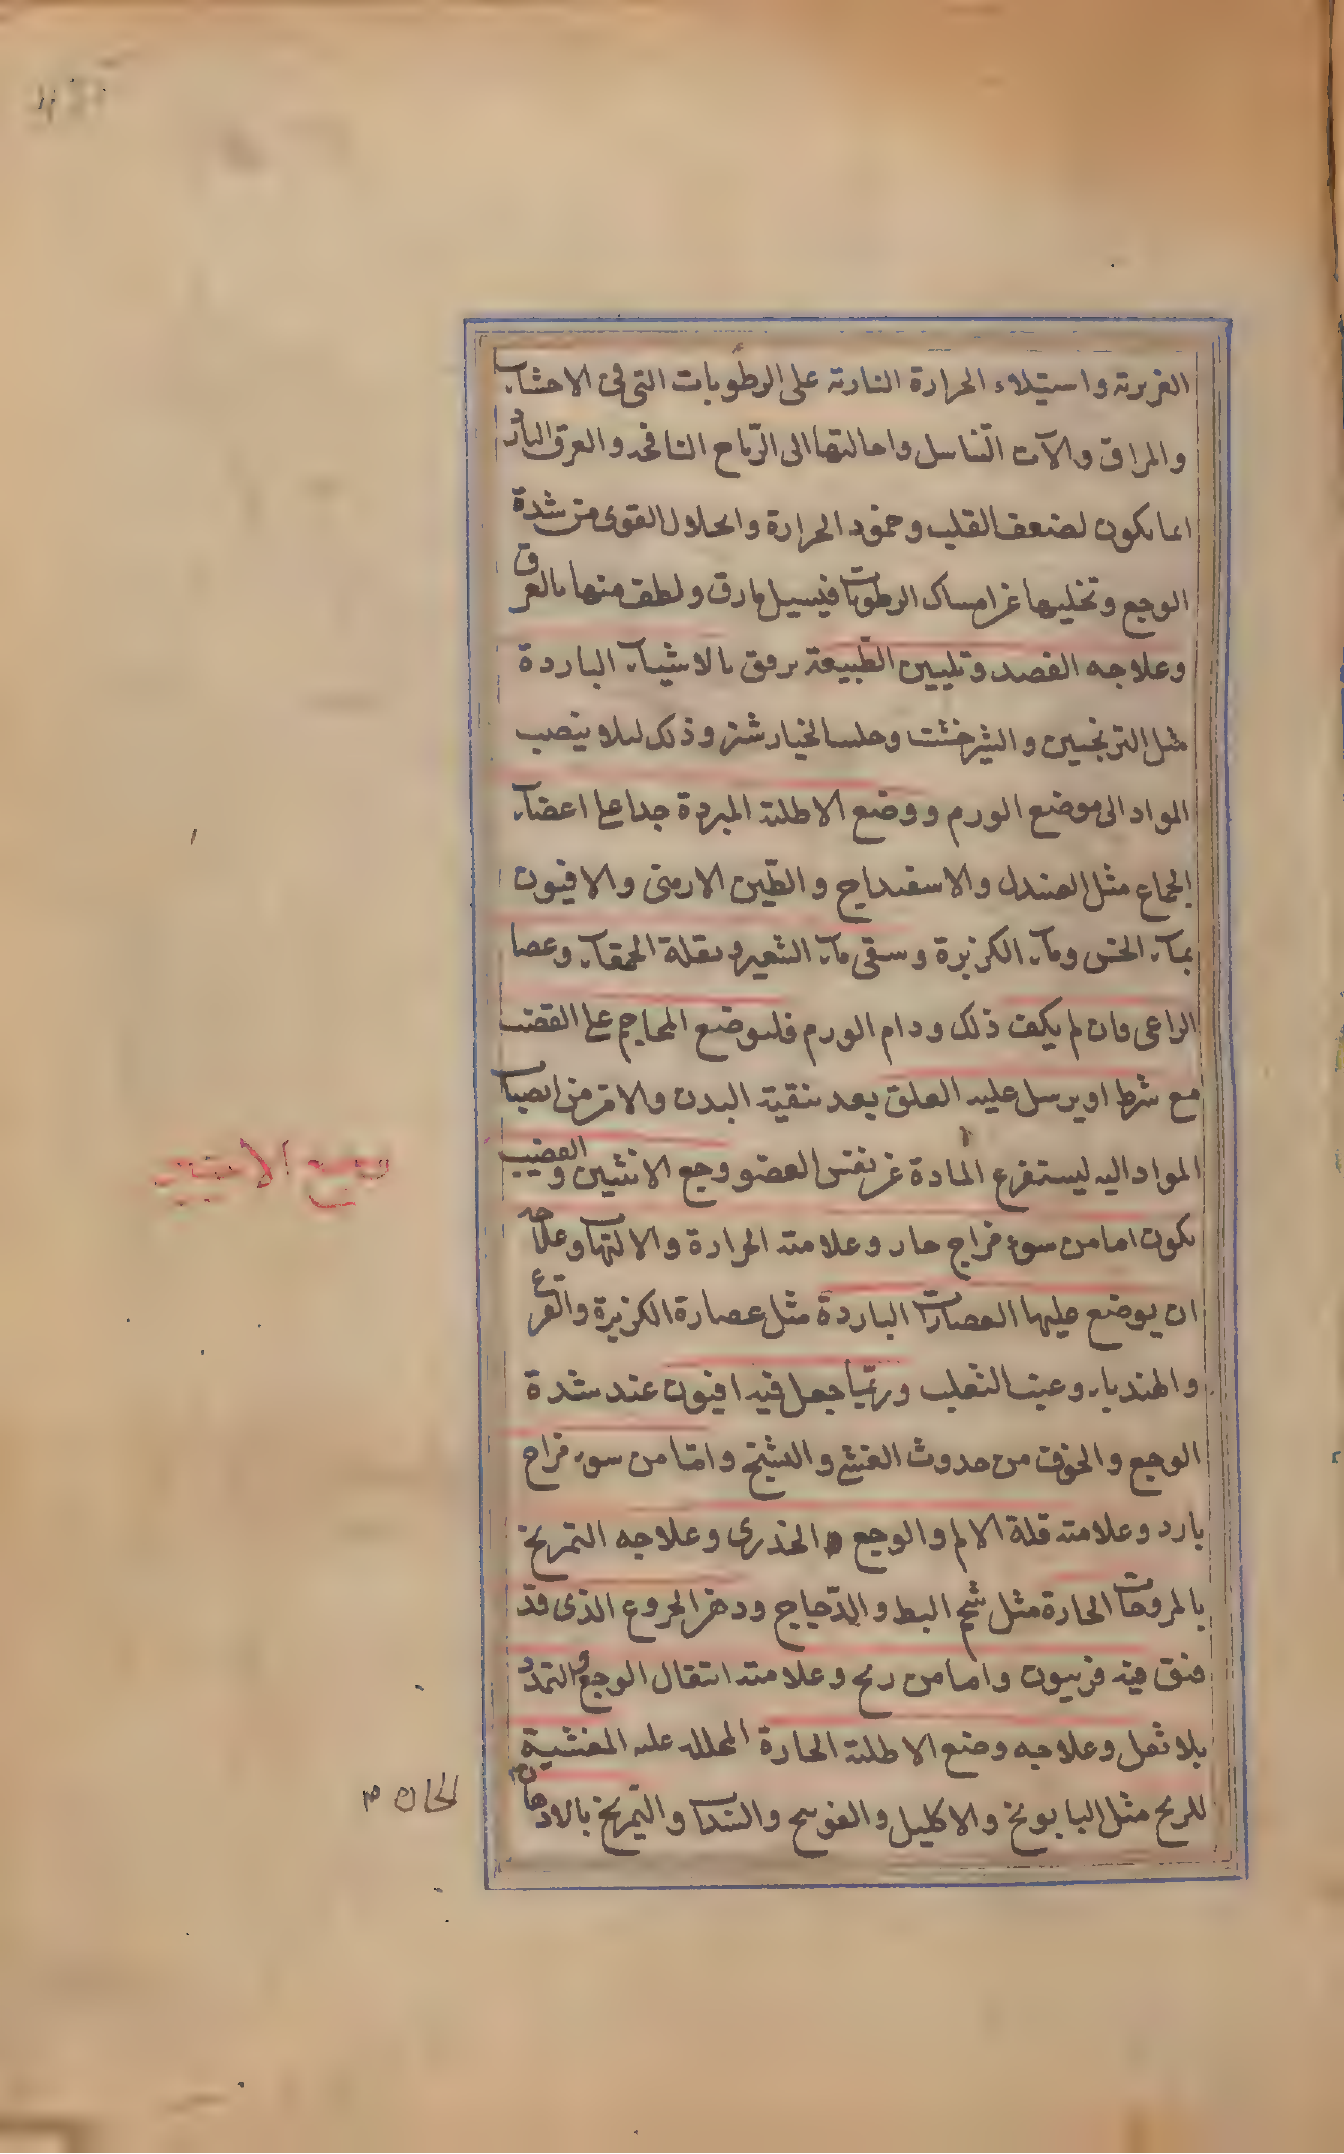 الغريزية واستيلاء الحرارة النارية على الرطوبات التى فى الاحشاء
والمراق والآت التناسل واحالتها الى الرياح النافخة والعرق البارد
انما يكون لضعف القلب وخمود الحرارة وانحلال القوى من شدة
الوجع وتخليها عن امساك الرطوبات فيسيل مارق ولطف منها بالعرق
وعلاجه الفصد وتليين الطبيعة برفق بالاشياء الباردة
مثل الترنجبين والشيرخشت وخيارشنبر وذلك ليلا ينصب
المواد الى موضع الورم ووضع الاطلية المبردة جدا على اعضاء
الجماع مثل الصندل والاسفيداج والطين الارمنى والافيون
بماء الخس وماء الكزبرة وسقى ماء الشعير وبقلة الحمقاء وعصا
الراعى وان لم يكف ذلك ودام الورم فليوضع المحاجم على القضيب
مع شرط او يرسل عليه العلق بعد تنقية البدن والامن من انصباب
المواد اليه ليستفرغ المادة عن نفس العضو وجع الانثيين والقضيب
يكون اما من سوء مزاج حار وعلامته الحرارة والالتهاب وعلاجه
ان يوضع عليها العصارات الباردة مثل عصارة الكزبرة والقرع
والهندباء وعنب الثعلب وربما جعل فيه افيون عند شدة
الوجع والخوف من حدوث الغشى والتشنج واما من سوء مزاج
بارد وعلامته قلة الالم والوجع الخدرى وعلاجه التمريخ
بالمروخات الحارة مثل شحم البط والدجاج ودهن الخروع الذى قد
فتق فيه فربيون واما من ريح وعلامته انتقال الوجع والتمدد
بلا ثقل وعلاجه وضع الاطلية الحارة المحللة عليه المفشية
للريح مثل البابونج والاكليل والفوتنج والسداب والتمريخ بالادهان
وجع الانثيين
الحارة م